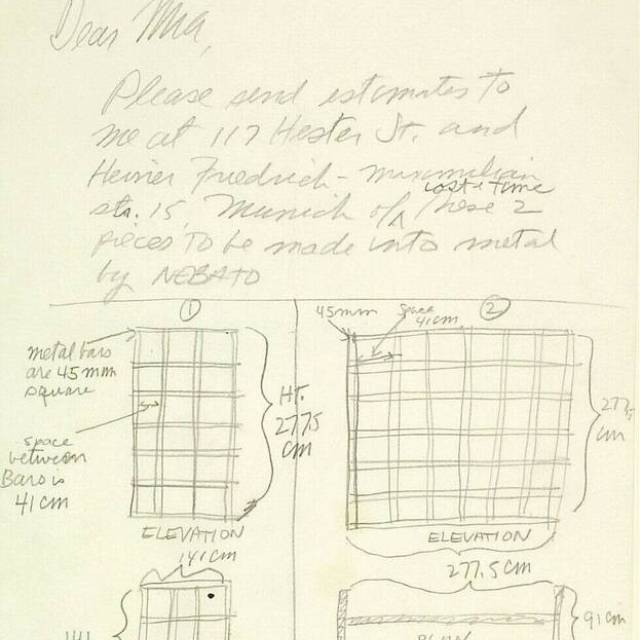 Dear Mia,
Please send estimates to
me at 117 Hester St. and
Heiner Friedrich - maximilian
cost + time
str. 15, Munich of ^ these 2
pieces to be made into metal
by NEBATO
① ②
45mm space 41cm
metal bars
are 45 mm
square
HT.
277.5
cm
277.
cm
space
between
Bars is
41 cm
ELEVATION
141 cm
ELEVATION
277.5 cm
141
91 cm
PLAN